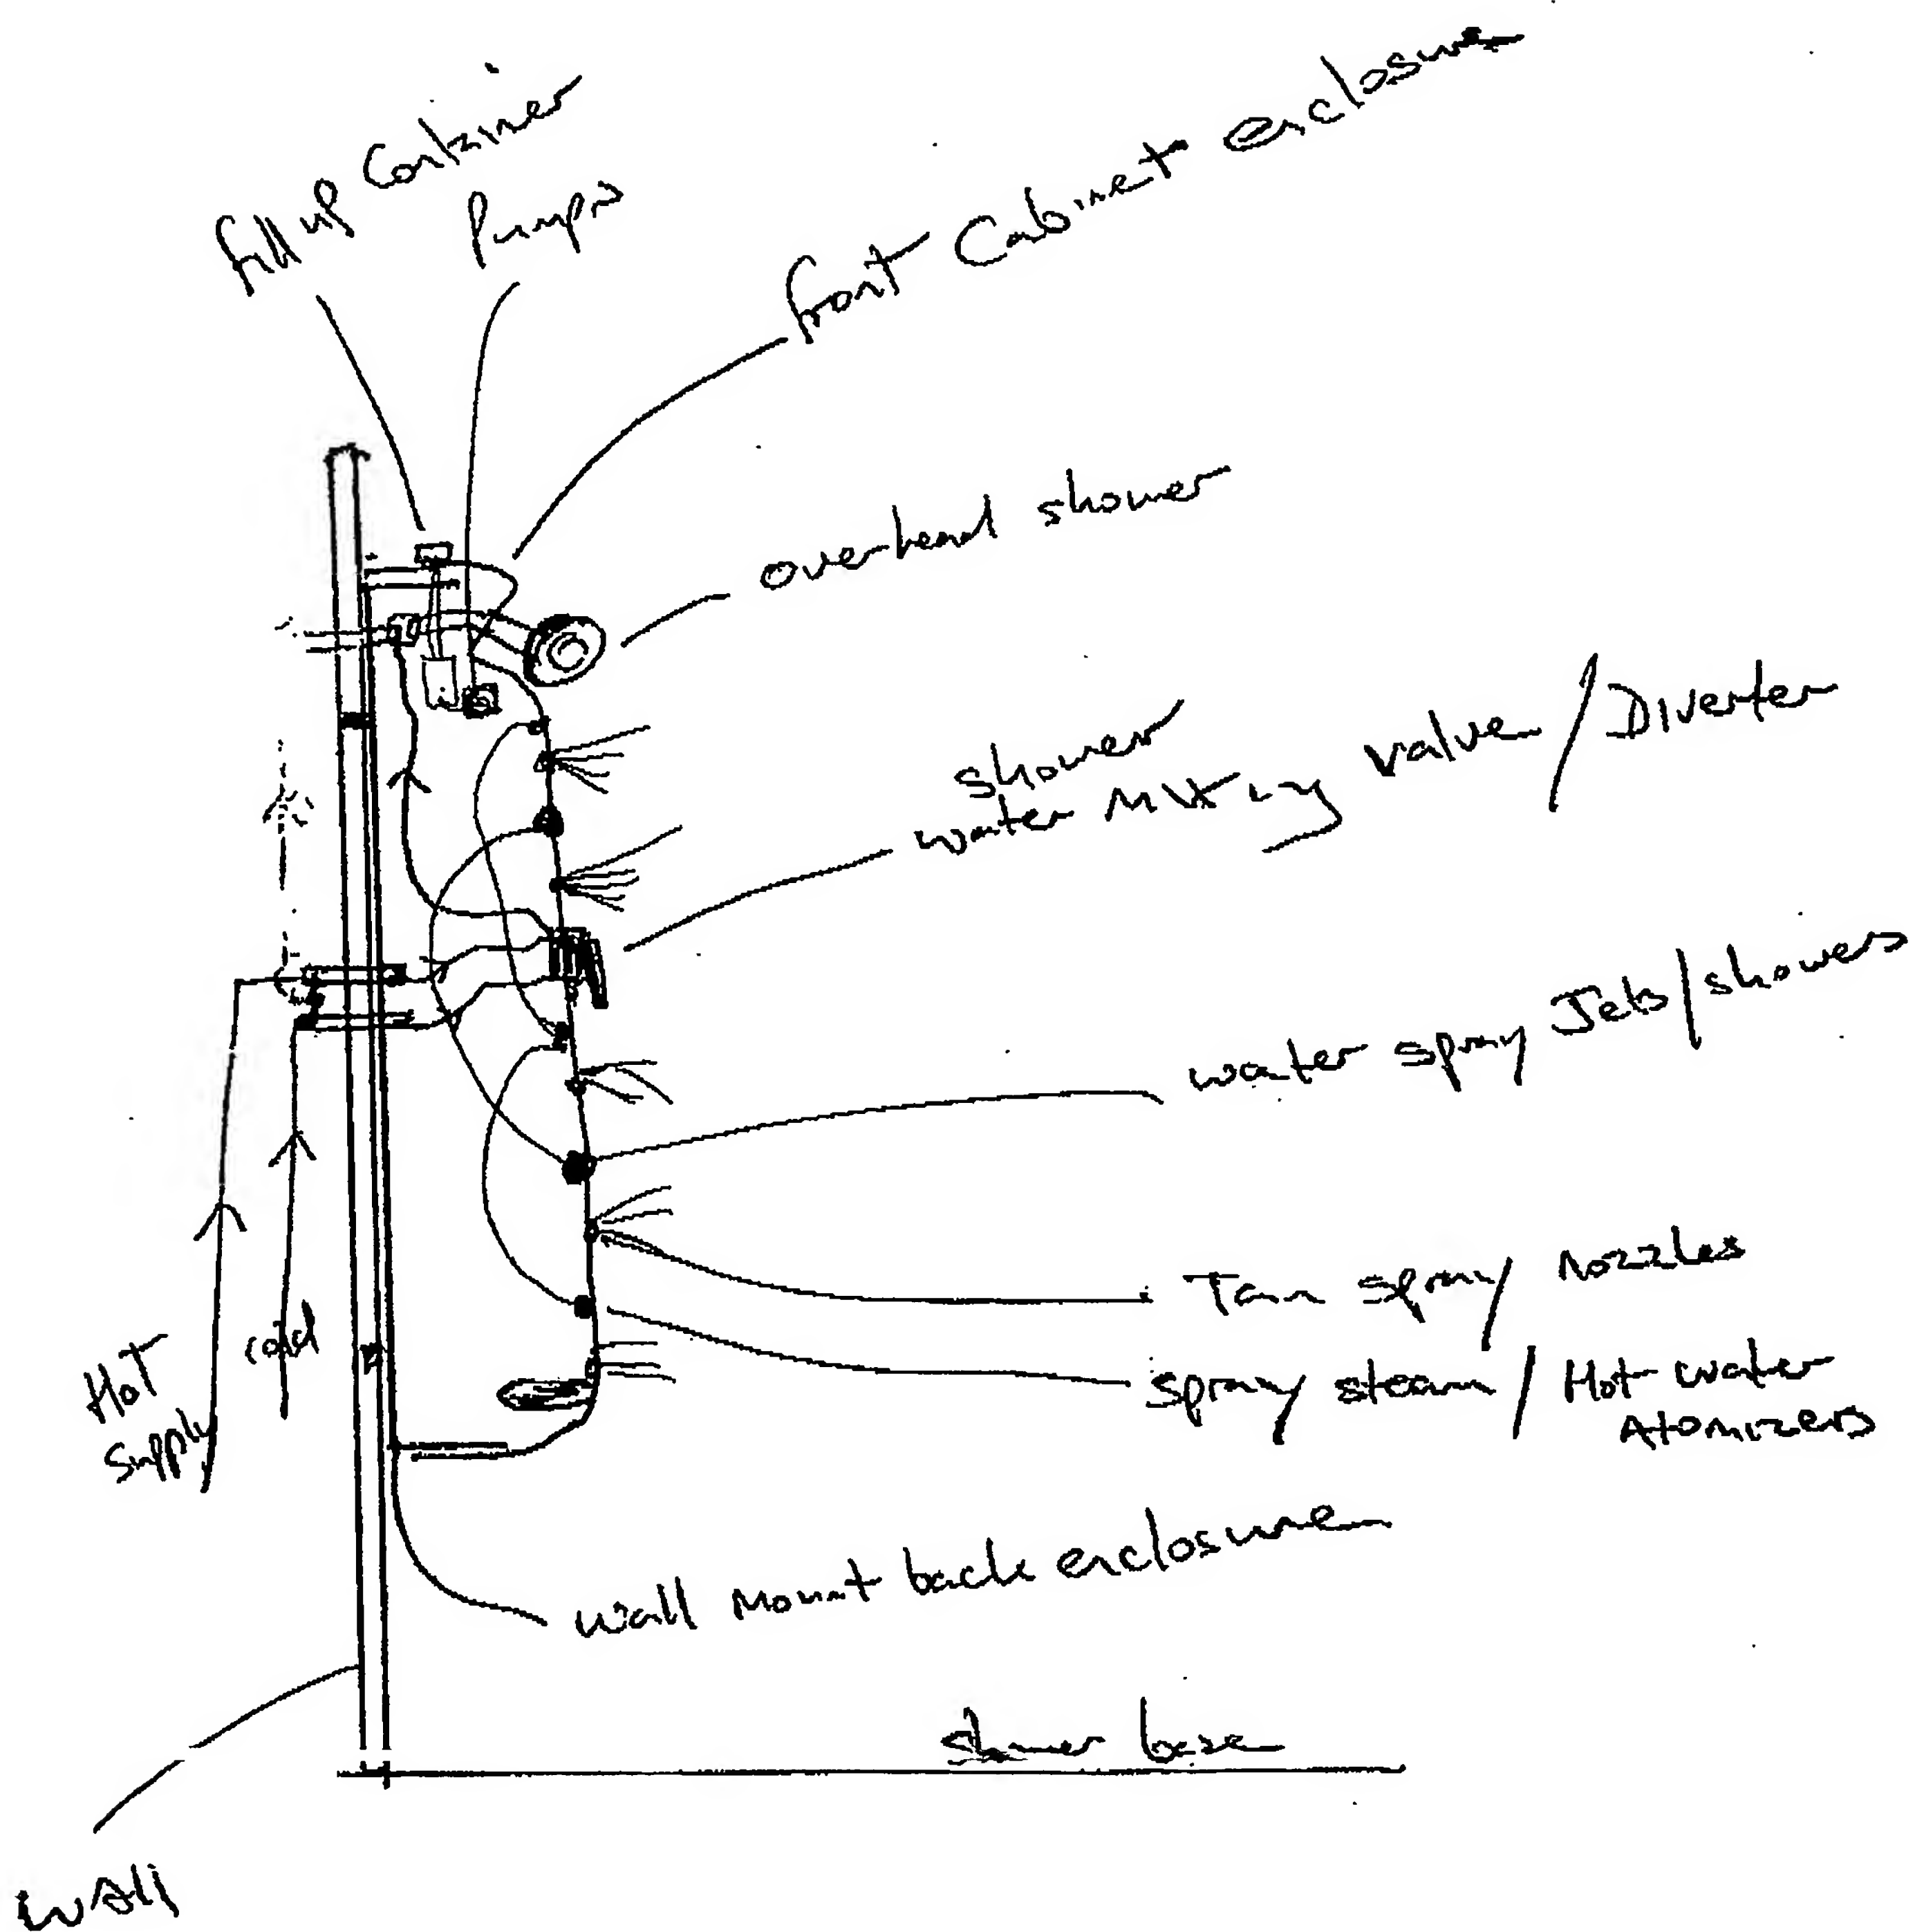 fill up Container
Pumps
front Cabinet enclosure
overhead shower
shower
water Mixing valve / Diverter
water spray Jets / showers
Tan spray Nozzles
spray steam / Hot water
Atomizers
HOT
Supply
cold
wall mount back enclosure
shower base
wall